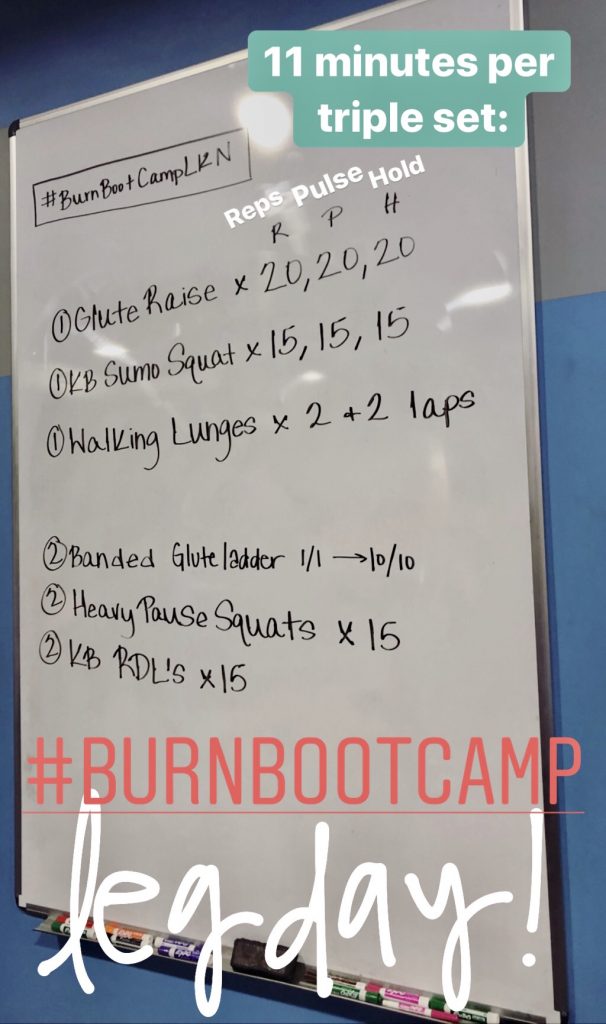 11 minutes per
triple set:
#BurnBootCampLKN
Reps Pulse Hold
R P H
①Glute Raise x 20, 20, 20
①KB Sumo Squat x 15, 15, 15
①Walking Lunges x 2 + 2 laps
②Banded Glute ladder 1/1 → 10/10
②Heavy Pause Squats x 15
②KB RDL's x 15
#BURNBOOTCAMP
leg day!